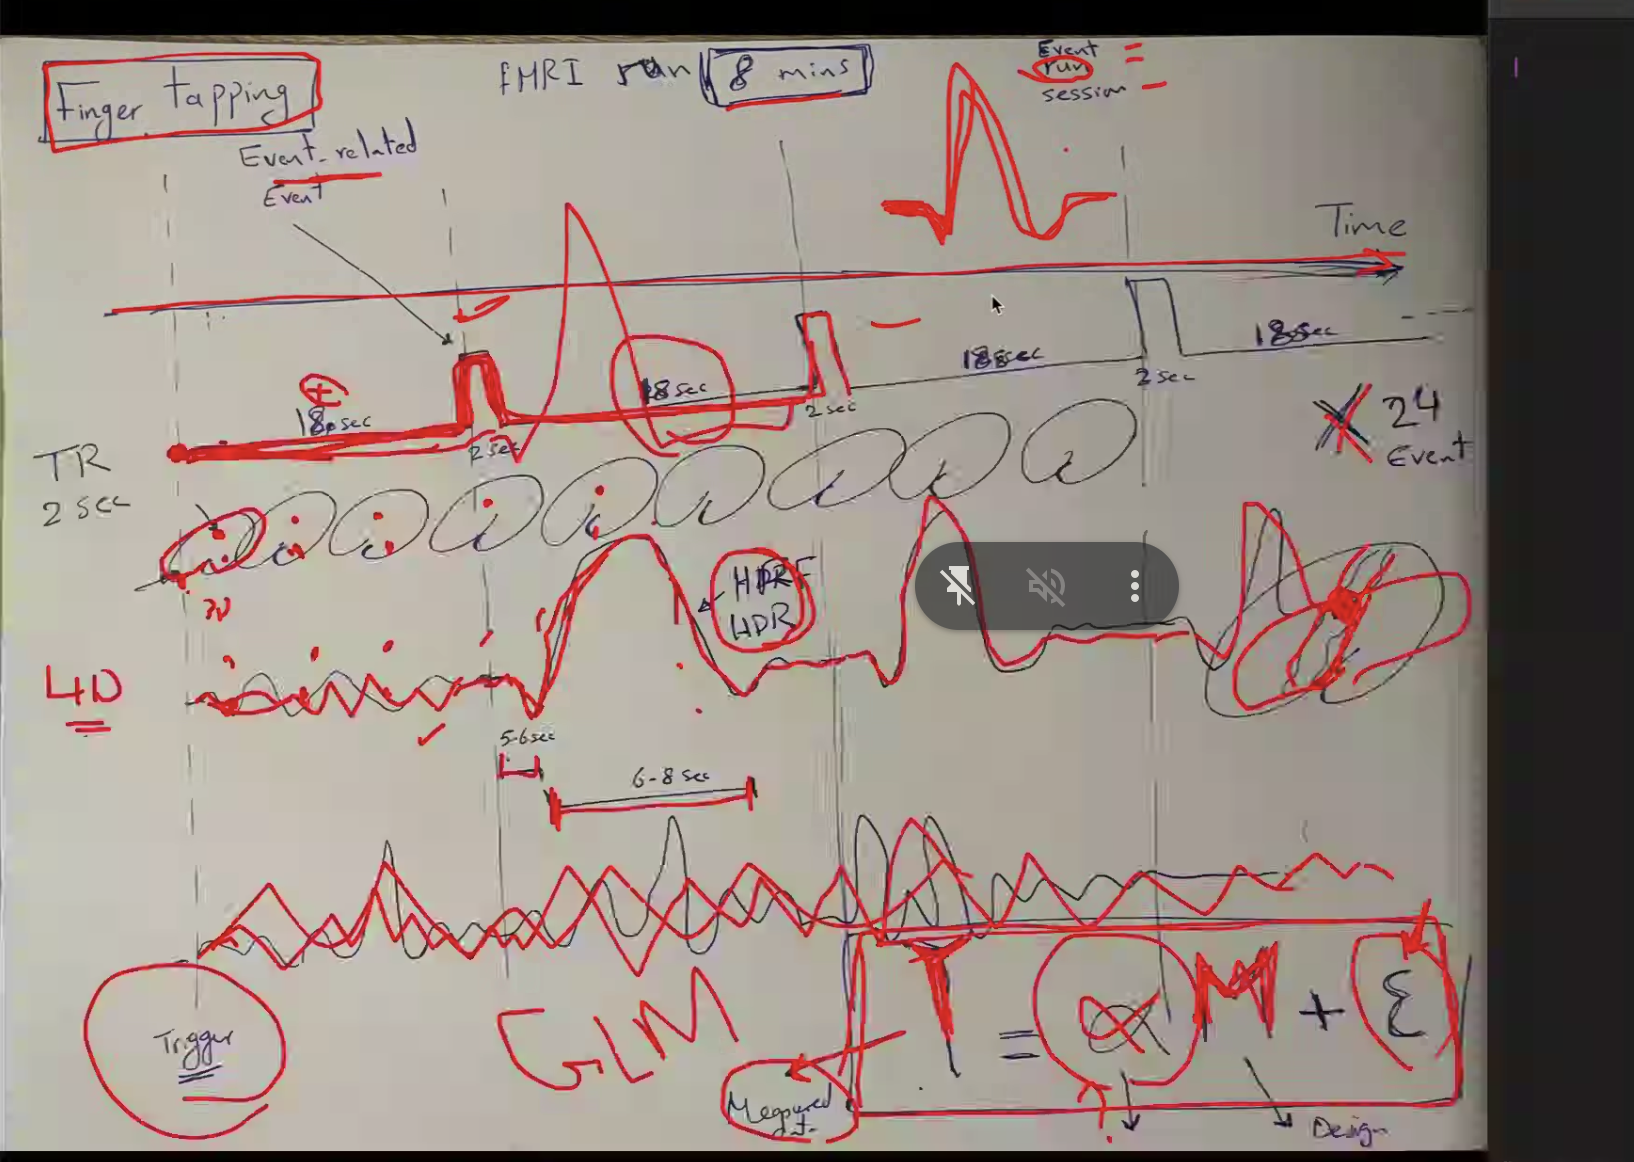 Finger tapping
fMRI run 8 mins
Event
run
session
Event-related
Event
Time
18 sec
2 sec
18 sec
2 sec
18 sec
2 sec
18 sec
X 24
Event
TR
2 sec
3D
HDRF
HDR
4D
5-6 sec
6-8 sec
Trigger
GLM
Y = α M + ε
Measured
Design